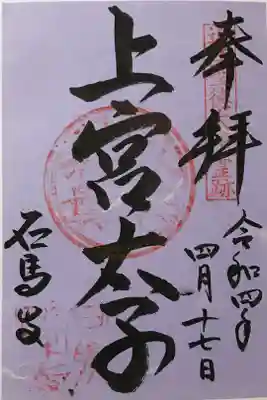 奉拝
令和四年
四月十七日
上宮太子
石馬寺